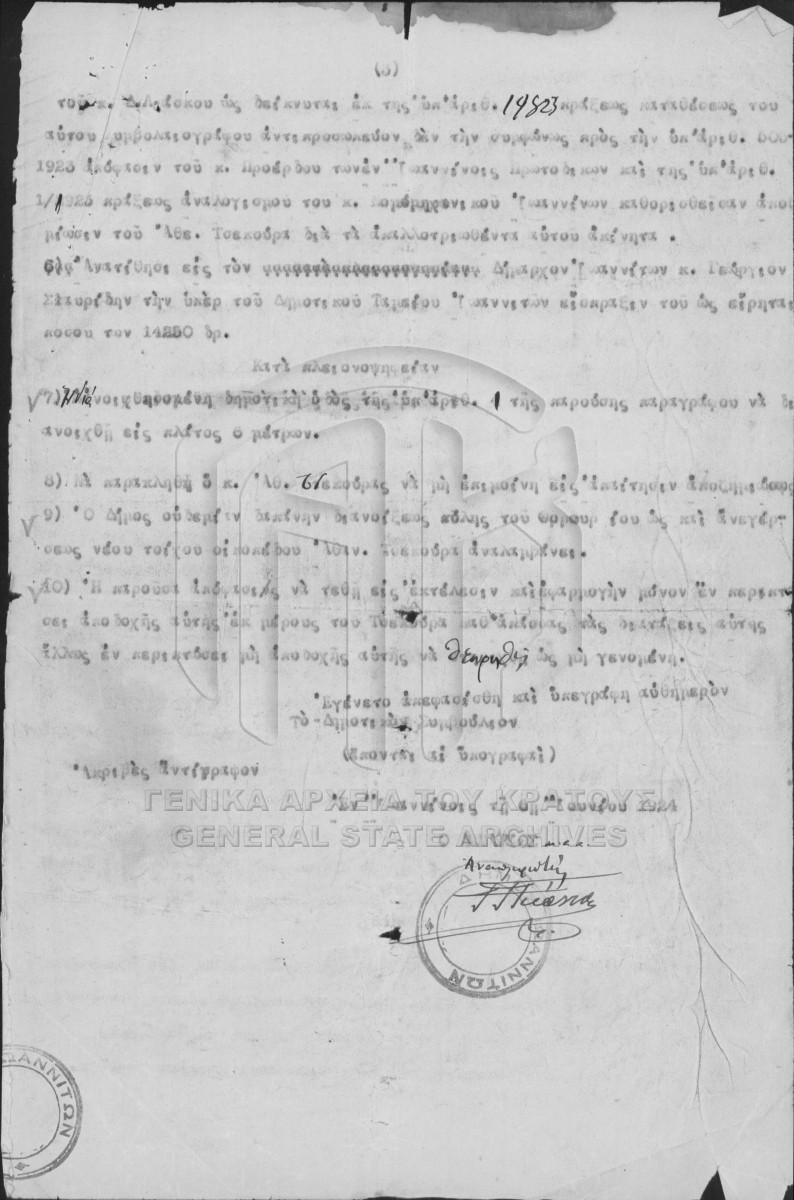 (3)
τοῦ κ. Δ.Λιάσκου ὡς δείκνυται ἐκ τῆς ὑπ'ἀριθ. 19823 πράξεως καταθέσεως του
αὐτου συμβολαιογράφου ἀντιπροσωπεῦον δὲν τὴν συμφώνως πρὸς τὴν ὑπ'ἀριθ. 500-
1923 ἀπόφασιν τοῦ κ. Προέδρου τωνἐν Ἰωαννίνοις Πρωτοδικων καὶ της ὑπ'ἀριθ.
1/1923 πράξεως ἀναλογισμοῦ του κ. Νομομηχανικοῦ Ἰωαννίνων καθορισθεῖσαν ἀποζ
μίωσιν τοῦ Ἀθ. Τσεκούρα διὰ τὰ ἀπαλλοτριωθέντα αὐτου ἀκίνητα .
6) Ἀνατίθησι εἰς τὸν Δήμαρχον Ἰωαννίτων κ. Γεώργιον
Σταυρίδην τὴν ὑπὲρ τοῦ Δημοτικοῦ Ταμείου Ἰωαννιτῶν εἴσπραξιν του ὡς εἴρηται
ποσου τον 14250 δρ.
Κατὰ πλειονοψηφίαν
7) Ἡ διανοιχθησομένη δημοτικὴ ὁδὸς τῆς ὑπ'ἀριθ. 1 τῆς παρούσης παραγράφου νὰ δι
ανοιχθῆ εἰς πλάτος 6 μέτρων.
8) Νὰ παρακληθῆ ὁ κ. Ἀθ. Τσεκούρας νὰ μὴ ἐπιμείνη εἰς ἀπαίτησιν ἀποζημιώσεως
9) Ὁ Δῆμος οὐδεμίαν δαπάνην διανοίξεως πύλης του ὡς καὶ ἀνεγέρ-
σεως νέου τοίχου οἰκοπέδου Ἀθαν. Τσεκούρα ἀναλαμβάνει.
10) Ἡ παροῦσα ἀπόφασις νὰ τεθῆ εἰς ἐκτέλεσιν καὶ ἐφαρμογὴν μόνον ἐν περιπτώ
σει ἀποδοχῆς αὐτῆς ἐκ μέρους του Τσεκούρα καθ'ἁπάσας τὰς διατάξεις αὐτῆς
ἄλλως ἐν περιπτώσει μὴ ἀποδοχῆς αὐτῆς νὰ θεωρηθῇ ὡς μὴ γενομένη.
Ἐγένετο ἀπεφασίσθη καὶ ὑπεγράφη αὐθημερὸν
Τὸ Δημοτικὸν Συμβούλιον
(ἕπονται αἱ ὑπογραφαὶ)
Ἀκριβὲς ἀντίγραφον
Ἐν Ἰωαννίνοις τῆ Ἰουνίου 1924
ΓΕΝΙΚΑ ΑΡΧΕΙΑ ΤΟΥ ΚΡΑΤΟΥΣ
GENERAL STATE ARCHIVES
Ὁ ΔΗΜΑΡΧΟΣ
Αναπληρωτὴς
ΑΝΝΙΤΩΝ
ΩΑΝΝΙΤΩΝ